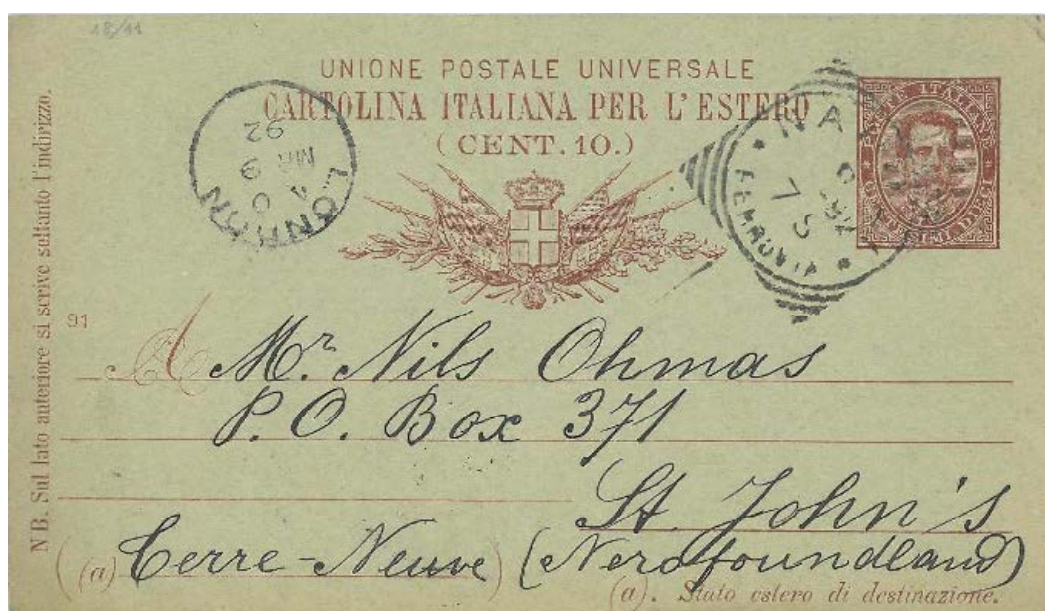 18/11
UNIONE POSTALE UNIVERSALE
CARTOLINA ITALIANA PER L'ESTERO
(CENT. 10.)
LONDON
C
MR 9
92
FERROVIA
POSTE ITALIANE
NB. Sul lato anteriore si scrive soltanto l'indirizzo.
91
A Mr. Nils Ohmas
P. O. Box 371
St. John's
(a) Terre-Neuve (Newfoundland)
(a). Stato estero di destinazione.